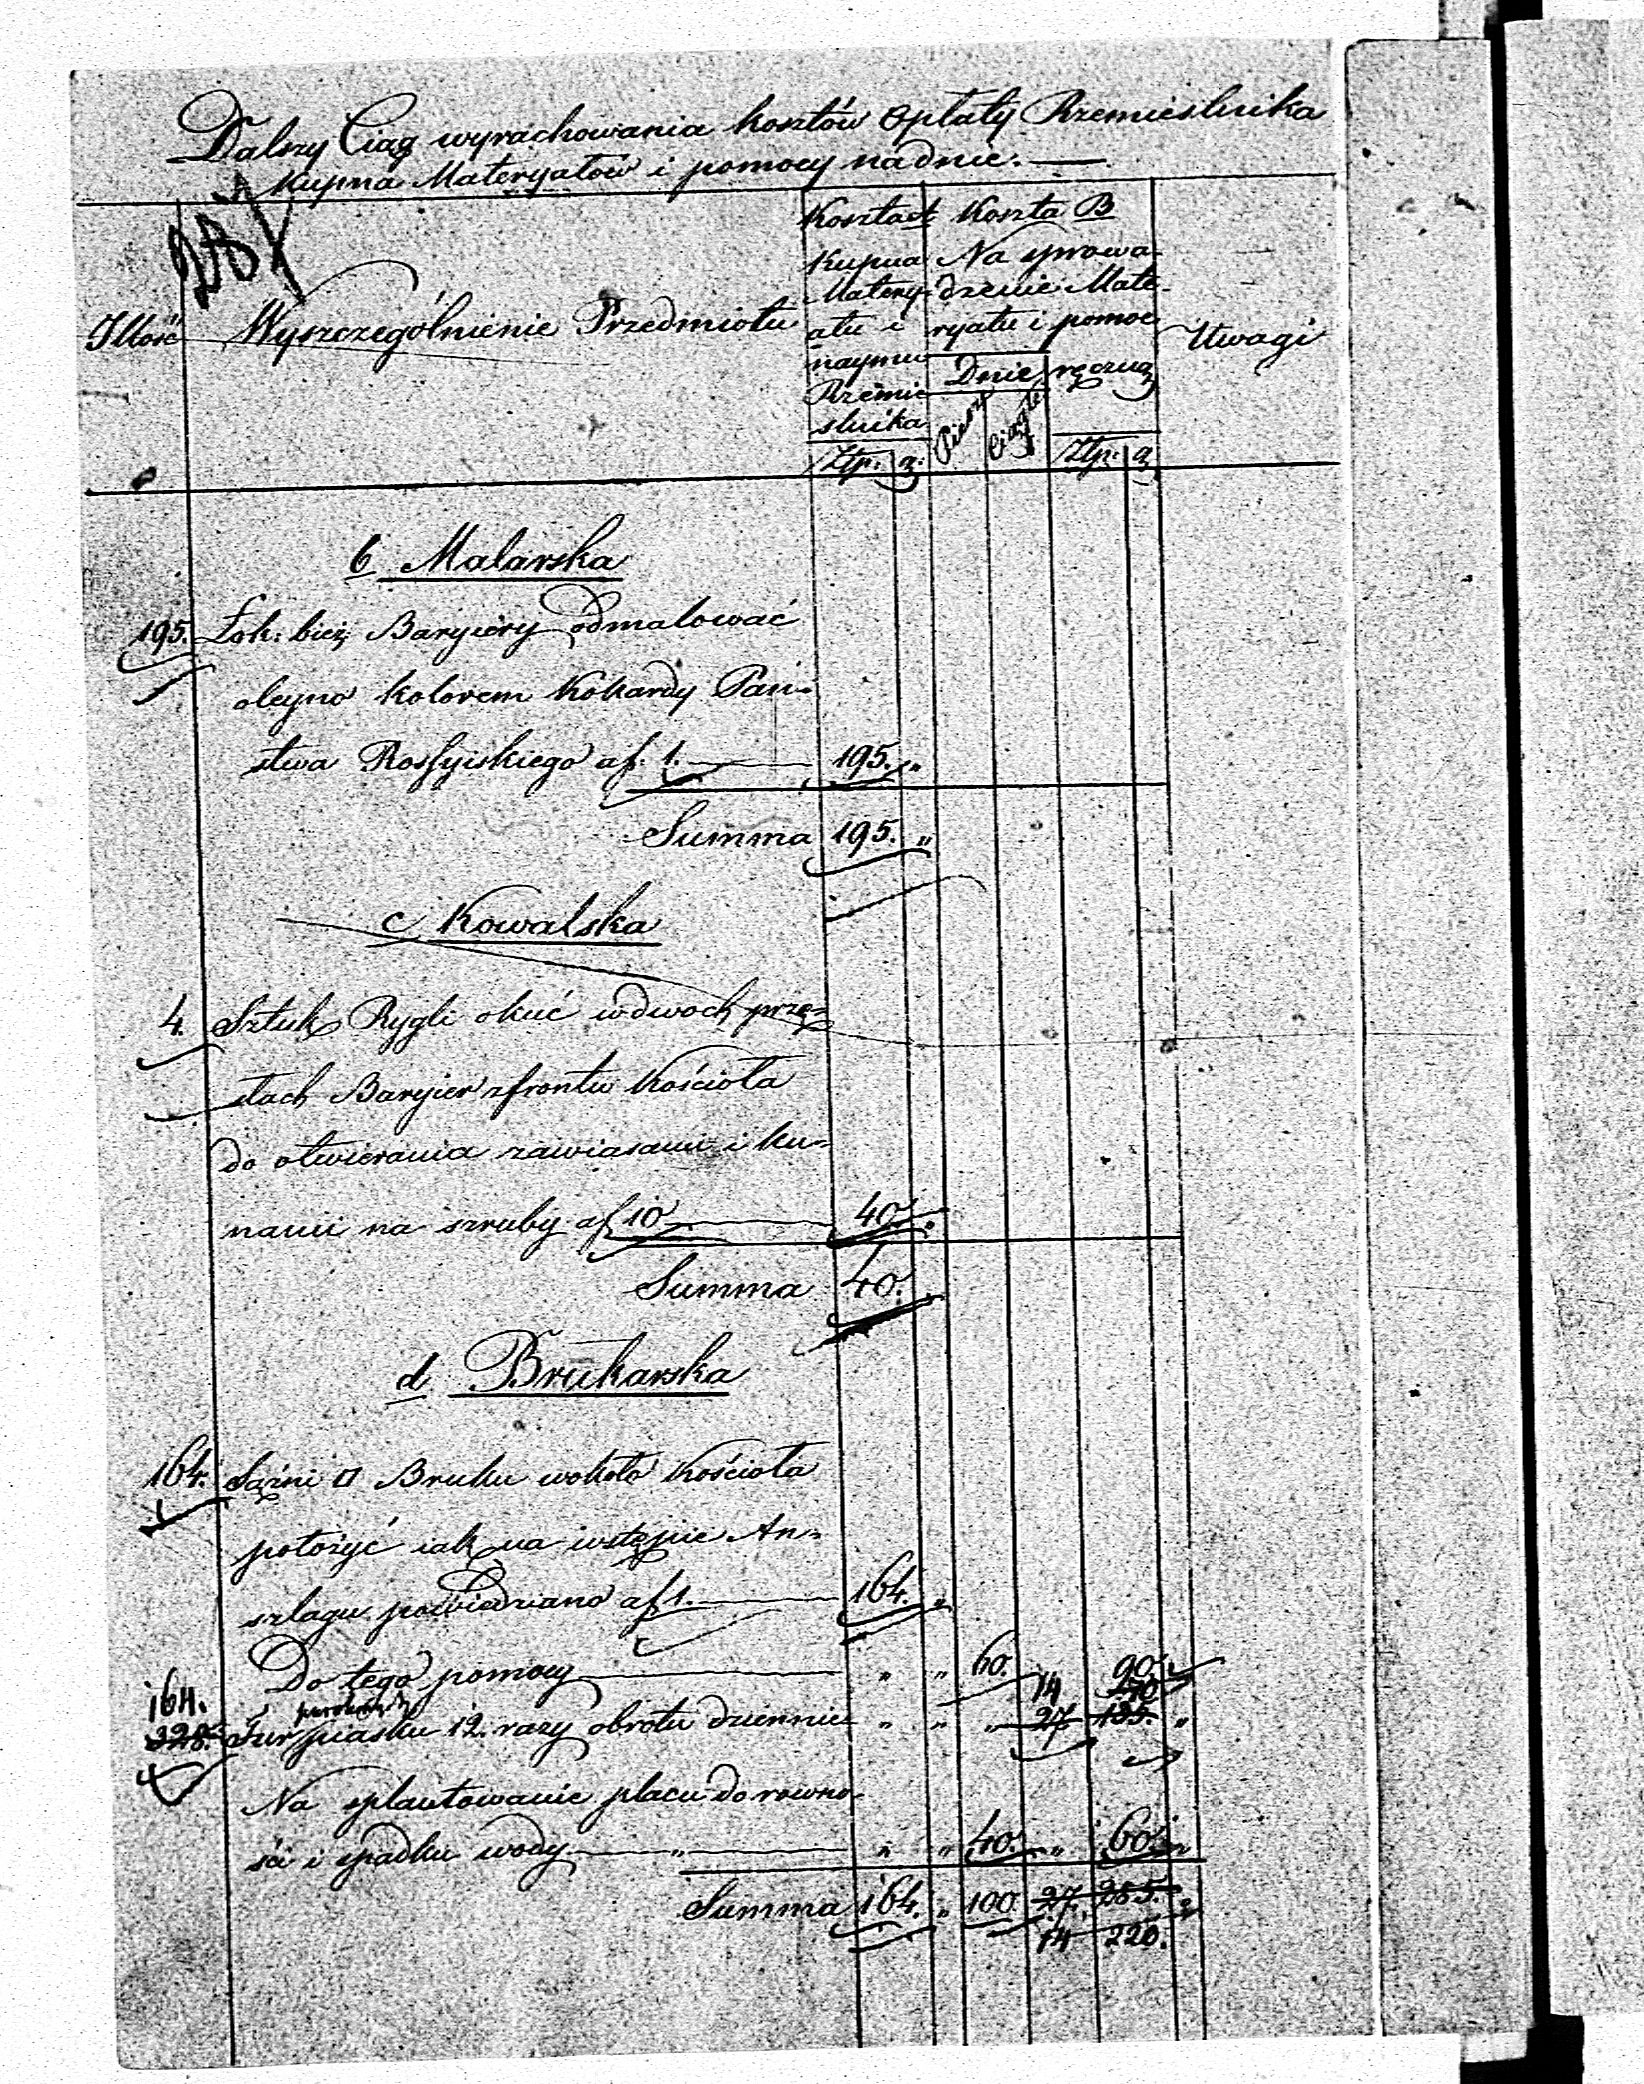 Dalszy Ciąg wyrachowania kosztów opłaty Rzemieslnika
Kupna Materyałów i pomocy na dnie.
Ilość
Wyszczególnienie Przedmiotu
Koszta A
Kupna
Matery-
ału i
naymu
Rzemie
slnika
Złp. g.
Koszta B
Na sprowa-
dzenie Mate-
ryału i pomoc
Dnie ręczną
Piesze Ciągłe
Złp. g.
Uwagi
b Malarska
195. Łok: bież: Baryiery odmalować
oleyno kolorem Kokardy Pań-
stwa Rossyiskiego a f. 1. 195. „
Summa 195. „
c Kowalska
4. Sztuk Rygli okuć w dwoch przę-
słach Baryier z frontu Kościoła
do otwierania zawiasami i ku-
nami na szruby a f 10 40. „
Summa 40.
d Brukarska
164. Sążni □ Bruku wokoło Kościoła
położyć iak na wstępie An-
szlagu powiedziano a f 1. 164. „
Do tego pomocy „ „ 60. 90.
164. 14 70
328. Fur piasku 12. razy obrotu dziennie „ „ „ 27 135. „
Na splantowanie placu do rowno-
ści i spadku wody „ „ „ 40. „ 60. „
Summa 164. „ 100. 27. 285. „
14 220.